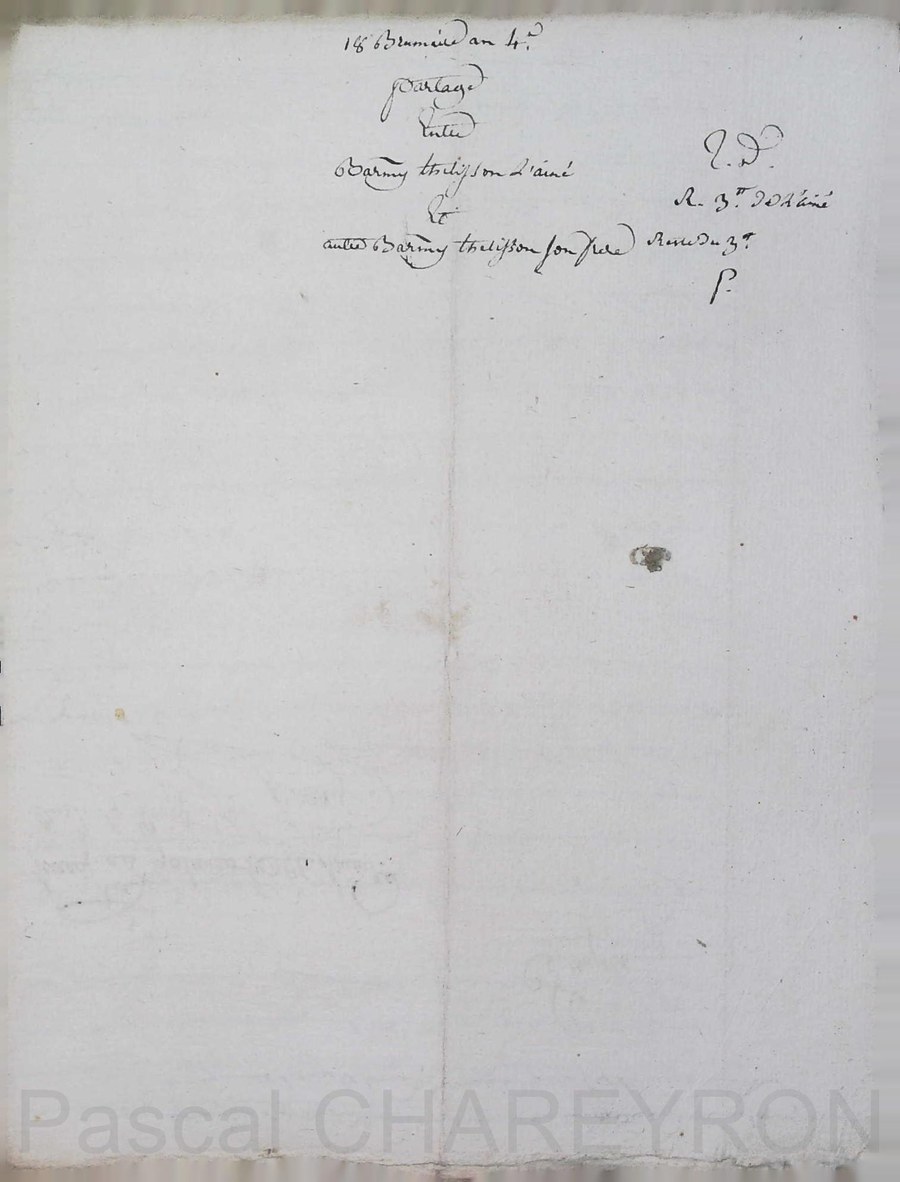 18 Brumaire an 4.e
partage
Entre
Barmy thelisson L'ainé
Et
autre Barmy thelisson son frere
R. 3.tt de L'ainé
Reste du 3.e
Pascal CHAREYRON